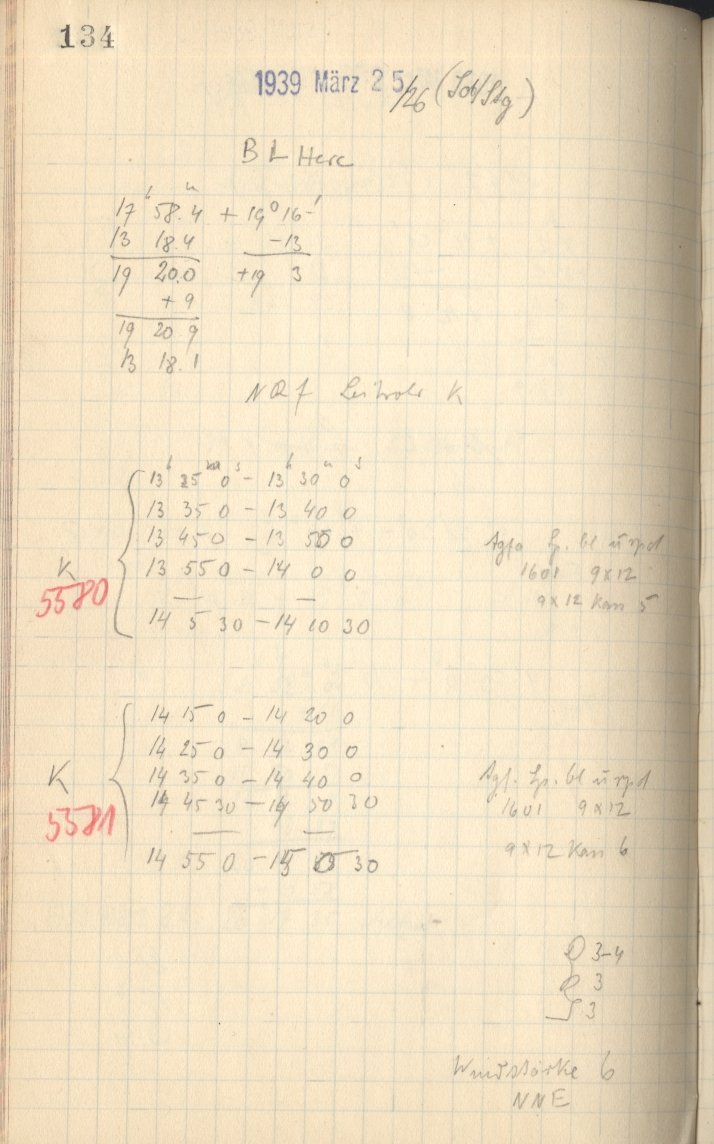 134
1939 März 25/26 (Sd/Stg)
BL Herc
17h 58.4m + 19° 16'
13 18.4 -13
19 20.0 +19 3
+ 9
19 20 9
13 18.1
NQf K
13h 25m 0s - 13h 30m 0s
13 35 0 - 13 40 0
13 45 0 - 13 50 0
Agfa Sp. bl u rpd
13 55 0 - 14 0 0
1601 9x12
K
5580
9x12 Kass 5
14 5 30 - 14 10 30
14 15 0 - 14 20 0
14 25 0 - 14 30 0
14 35 0 - 14 40 0
Agf. Sp. bl u rpd
K
14 45 30 - 14 50 30
1601 9x12
5581
14 55 0 - 15 0 30
9x12 Kass 6
3-4
3
3
Windstärke 6
NNE